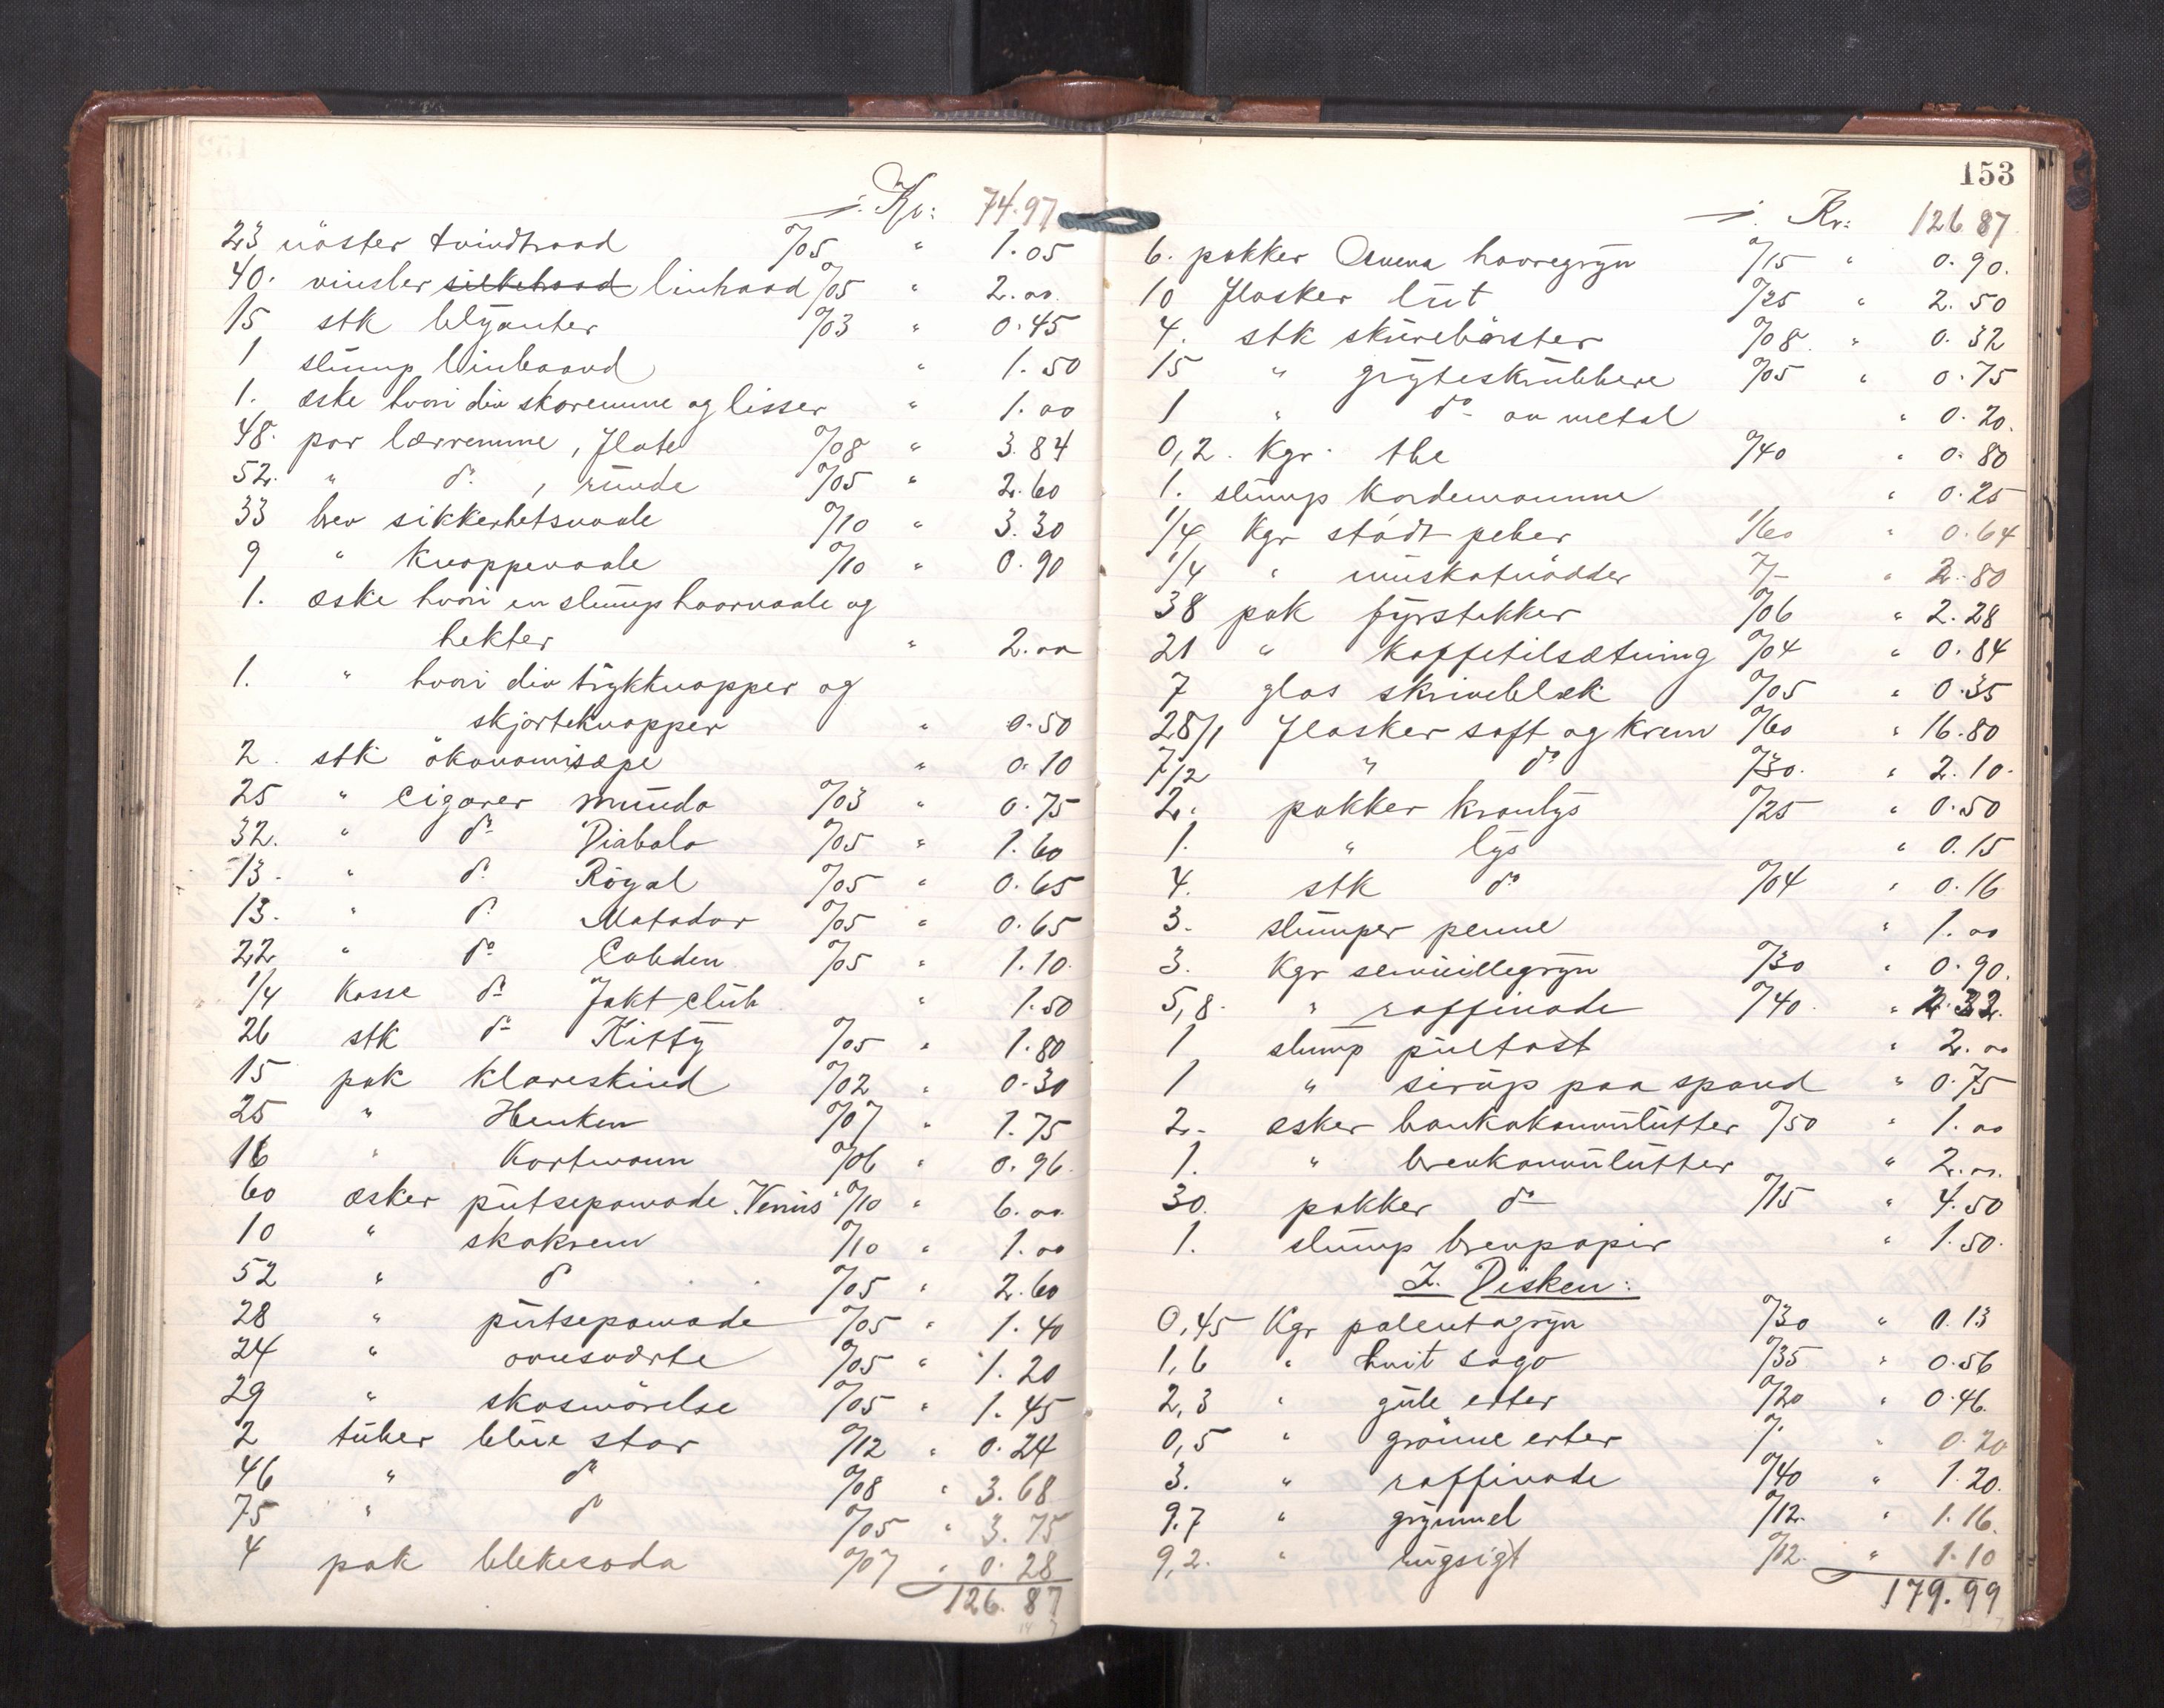 ÷ Kr: 74.97
23 nöster tvindtraad %05 " 1.05
40. vinsler silketraad lintraad %05 " 2.00
15 stk blyanter %03 " 0.45
1 slump linbaand " 1.50
1. æske hvori div skoremme og lisser " 1.00
48. par lærremme, flate %08 " 3.84
52. " do , runde %05 " 2.60
33 brev sikkerhetsnaale %10 " 3.30
9 " knappenaale %10 " 0.90
1. æske hvori en slump haarnaale og
hekter " 2.00
1. " hvori div trykknapper og
skjorteknapper " 0.50
2. stk ökonomisæpe " 0.10
25 " Cigarer Mundo %03 " 0.75
32. " do Diabolo %05 " 1.60
13. " do Royal %05 " 0.65
13. " do Matador %05 " 0.65
22 " do Cobden %05 " 1.10
1/4 kasse do Jakt club " 1.50
26 stk do Kitty %05 " 1.80
15 pak klareskind %02 " 0.30
25 " Henken %07 " 1.75
16 " Kortmann %06 " 0.96
60 æsker putsepomade "Venus" %10 " 6.00
10 " skokrem %10 " 1.00
52 " do %05 " 2.60
28 " putsepomade %05 " 1.40
24 " ovnsværte %05 " 1.20
29 " skosmörelse %05 " 1.45
2 tuber blue star %12 " 0.24
46 " do %08 " 3.68
75 " do %05 " 3.75
4 pak blekesoda %07 " 0.28
126.87
153
÷ Kr: 126 87
6. pakker havregryn %15 " 0.90.
10 flasker lut %25 " 2.50
4. stk skurebörster %08 " 0.32
15 " gryteskrubbere %05 " 0.75
1 " do av metal " 0.20.
0,2. Kgr. the %40 " 0.80
1. slump Kardemomme " 0.25
1/4 Kgr stödt peber 1/60 " 0.64
1/4 " muskatnödder 7/- " 2.80
38 pak fyrstikker %06 " 2.28
21 " kaffetilsætning %04 " 0.84
7 glas skriveblæk %05 " 0.35
28/1 flasker saft og krem %60 " 16.80
7/2 " do %30. " 2.10.
2. pakker kronlys %25 " 0.50
1. " lys " 0.15
4. stk do %04 " 0.16
3. slumper penne " 1.00
3. Kgr semuillegryn %30 " 0.90.
5,8. " raffinade %40. " 2.32.
1 slump pultost " 2.00
1 " sirup paa spand " 0.75
2. æsker %50 " 1.00
1. " " 2.00.
30. pakker do %15 " 4.50
1. slump brevpapir " 1.50.
I. Disken:
0,45 Kgr polentagryn %30 " 0.13
1,6 " hvit sago %35 " 0.56
2,3 " gule erter %20 " 0.46.
0,5 " grönne erter %. " 0.20
3. " raffinade %40 " 1.20.
9.7 " grynmel %12. " 1.16.
9,2. " rugsigt %12. " 1.10
179.99